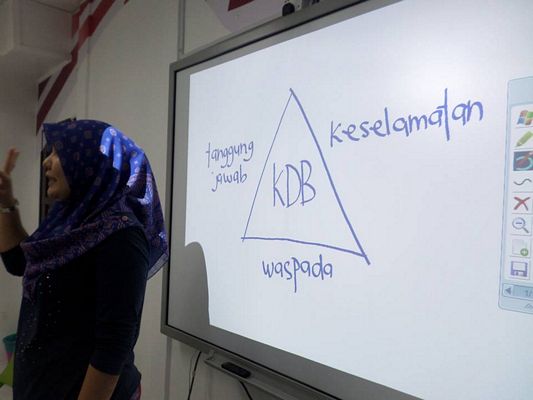 keselamatan
tanggung
jawab
KDB
waspada